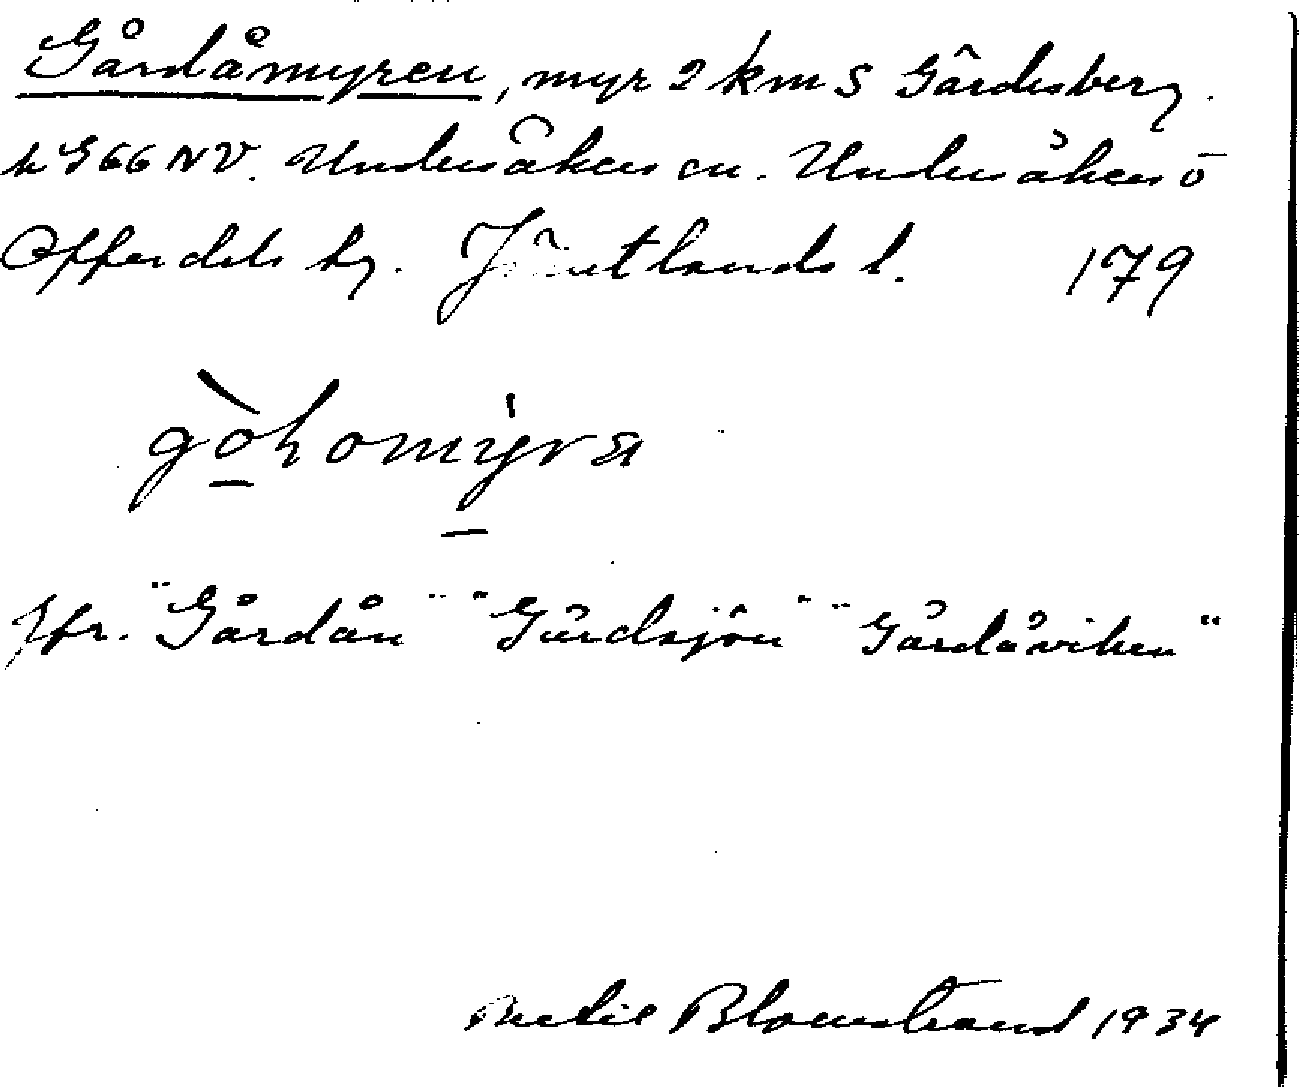 Gårdåmyren, myr 2 km S Gårdesberg.
k G66 NV. Undersåkers sn. Undersåkers o
Offerdals hg. Jämtlands l. 179
gòhomýra
Jfr. "Gårdån" "Gårdsjön" "Gårdåviken"
Bertil Blomstrand 1934